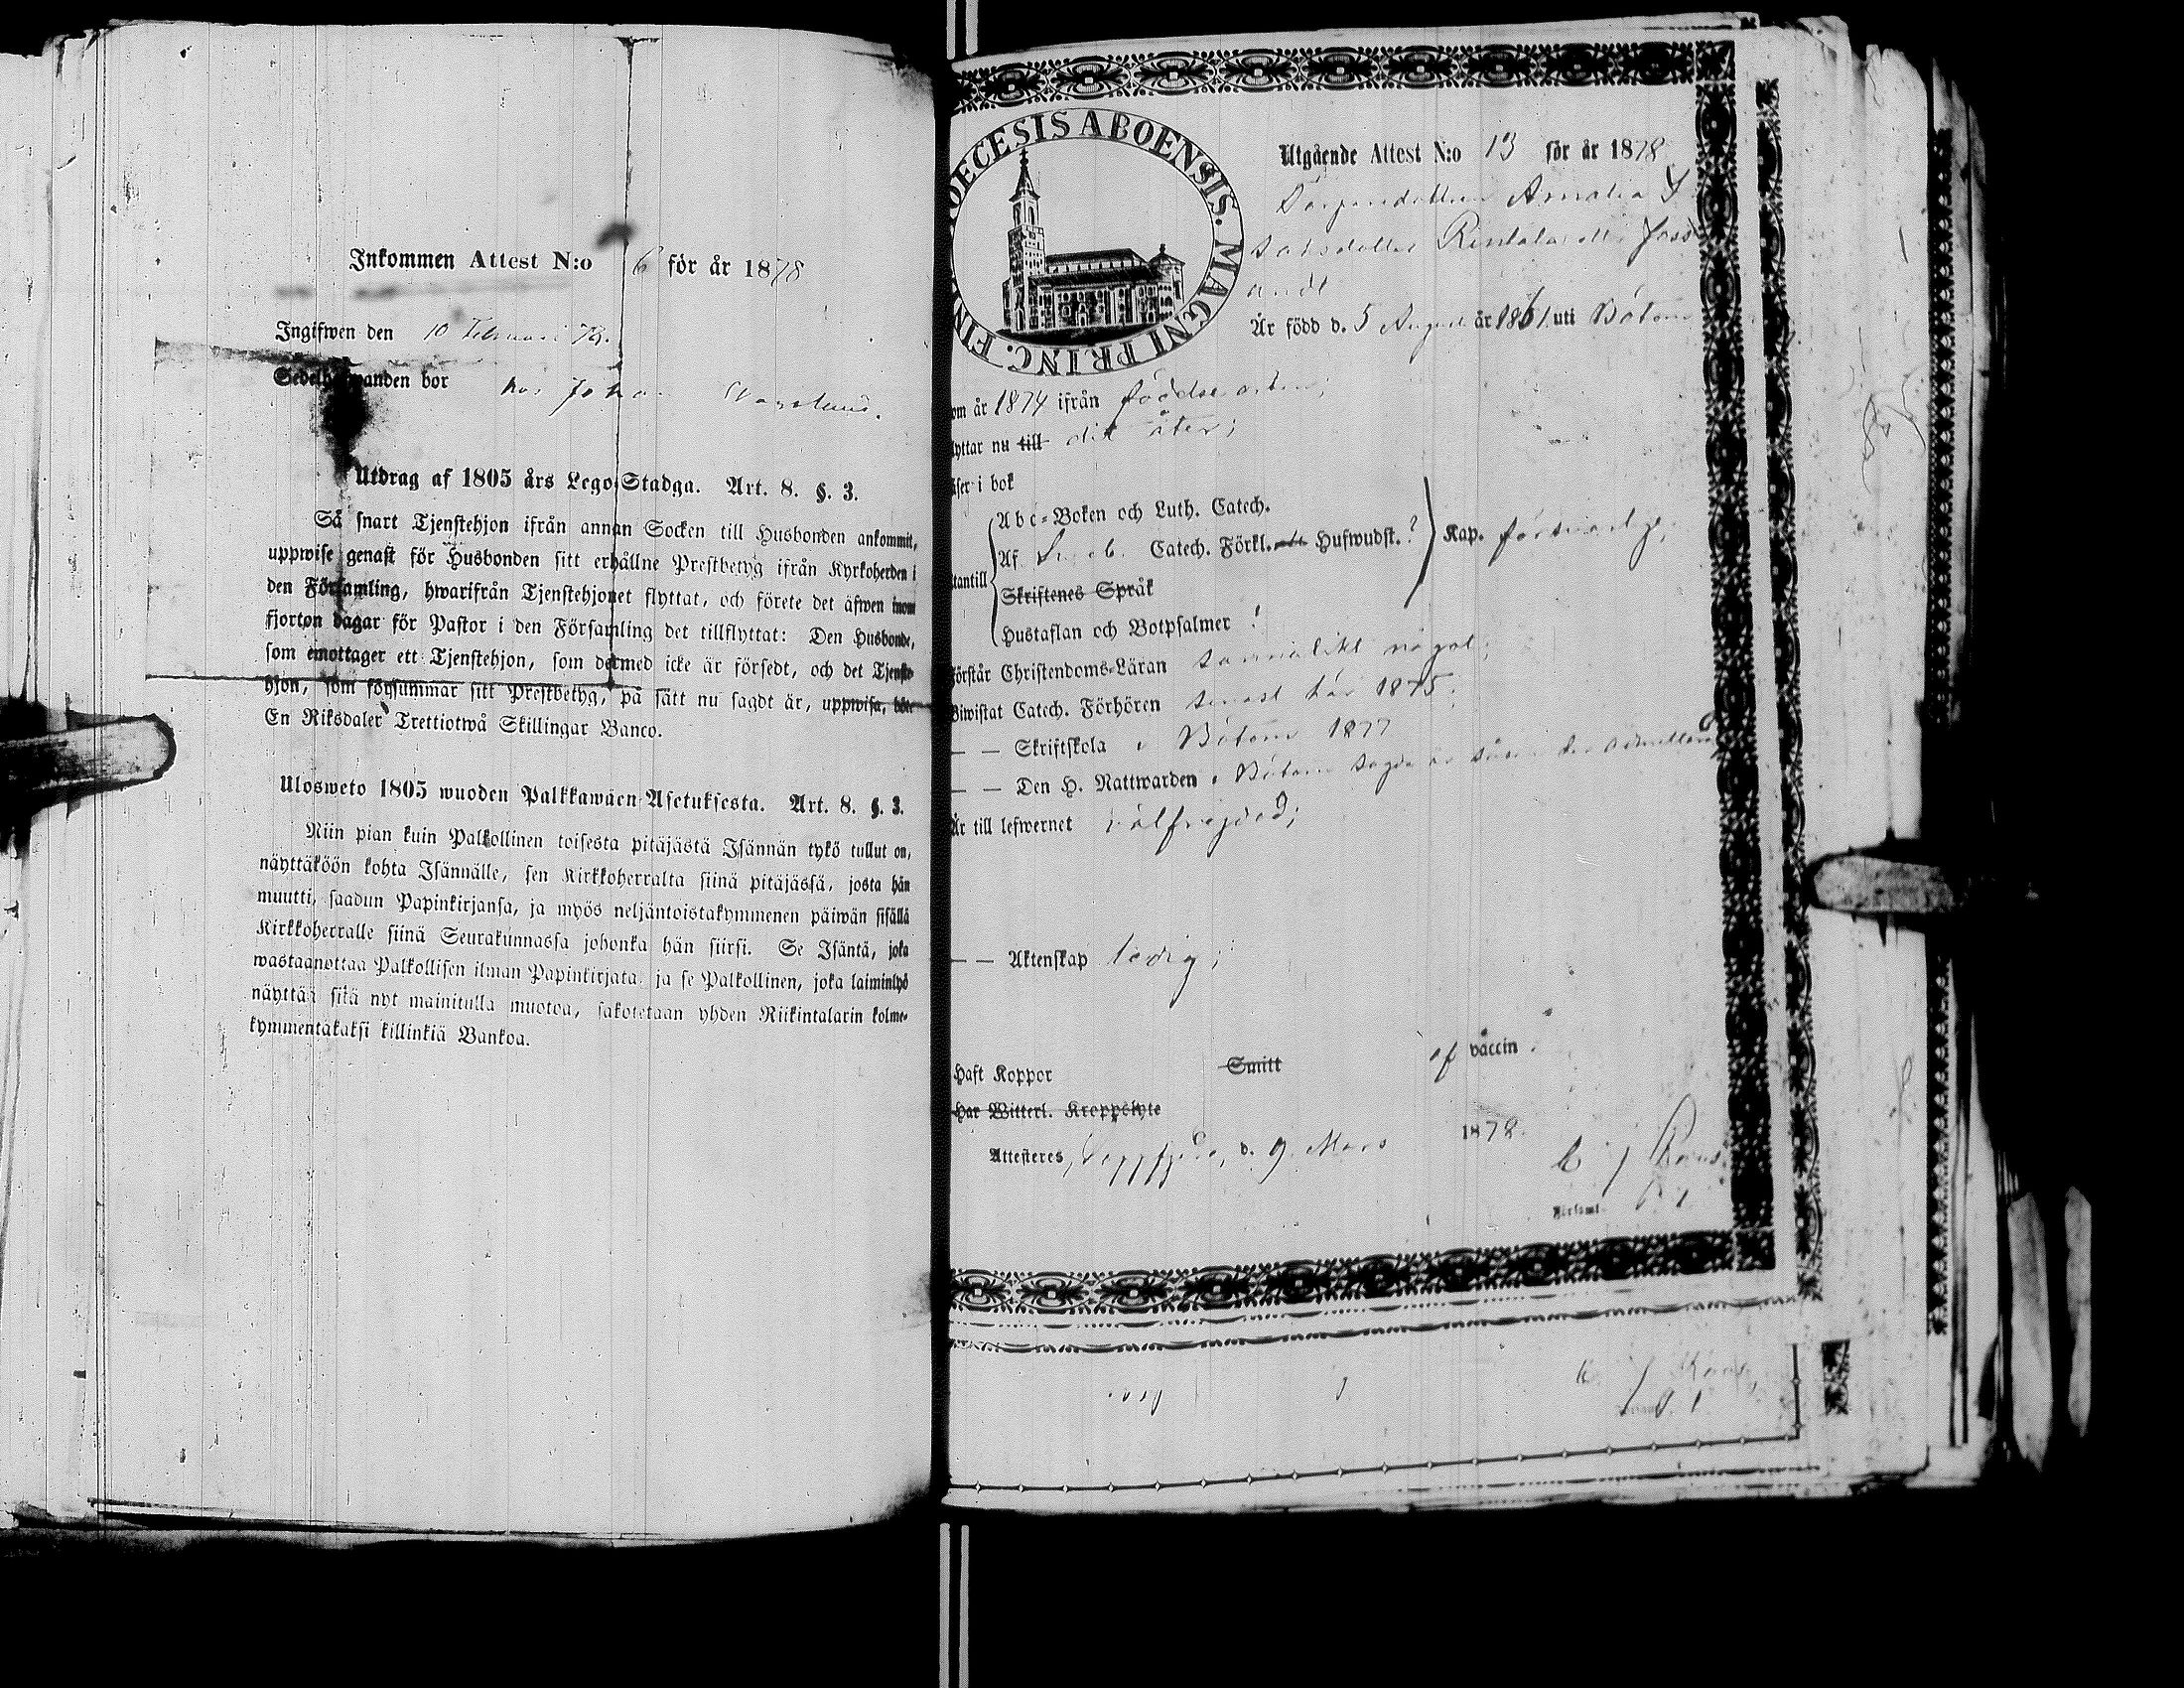 Inkommen Attest N:o 6 för år 1878
Ingifwen den 10 Februari 78.
Sedelhafwanden bor hos Johan
Utdrag af 1805 års Lego-Stadga. Art. 8. §. 3.
Så snart Tjenstehjon ifrån annan Socken till Husbonden ankommit,
uppwise genast för Husbonden sitt erhållne Prestbetyg ifrån Kyrkoherden i
den Församling, hwarifrån Tjenstehjonet flyttat, och förete det äfwen inom
fjorton dagar för Pastor i den Församling det tillflyttat: Den Husbonde,
som emottager ett Tjenstehjon, som dermed icke är försedt, och det Tjenste-
hjon, som försummar sitt Prestbetyg, på sätt nu sagdt är, uppwisa, böte
En Riksdaler Trettiotwå Skillingar Banco.
Ulosweto 1805 wuoden Palkkawäen-Asetuksesta. Art. 8. §. 3.
Niin pian kuin Palkollinen toisesta pitäjästä Isännän tykö tullut on,
näyttäköön kohta Isännälle, sen Kirkkoherralta siinä pitäjässä, josta hän
muutti, saadun Papinkirjansa, ja myös neljäntoistakymmenen päiwän sisällä
Kirkkoherralle siinä Seurakunnassa johonka hän siirsi. Se Isäntä, joka
wastaanottaa Palkollisen ilman Papinkirjata, ja se Palkollinen, joka laiminlyö
näyttää sitä nyt mainitulla muotoa, sakotetaan yhden Riikintalarin kolme-
kymmentäkaksi killinkiä Bankoa.
DIOECESIS ABOENSIS. MAGNI PRINC. FIN
Utgående Attest N:o 13 för år 1878
Torparedottren Amalia
Rintala
Är född d. 5 Augusti år 1861 uti Bötom
om år 1874 ifrån födelseorten;
lyttar nu till dit åter;
äser i bok
Abc-Boken och Luth. Catech.
Af Sveb. Catech. Förkl. Hufwudst.? Kap. försvarlig;
tantill
Skriftenes Språk
Hustaflan och Botpsalmer
örstår Christendoms-Läran något;
Biwistat Catech. Förhören senast här 1875;
— — Skriftskola i Bötom 1877
— — Den H. Nattwarden i Bötom
Är till lefwernet välfrejdad;
— — Äktenskap ledig;
Haft Koppor Smitt af vaccin.
Har Witterl. Kroppslyte
Attesteres, d. 9 Mars 1878.